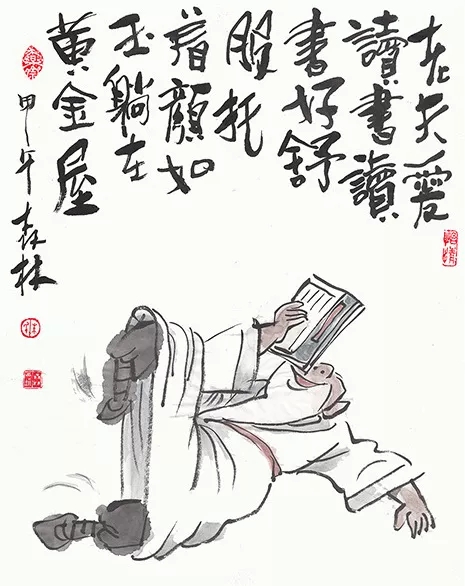 老夫愛
讀書讀
書好舒
服托
着顏如
玉躺在
黃金屋
甲午森林